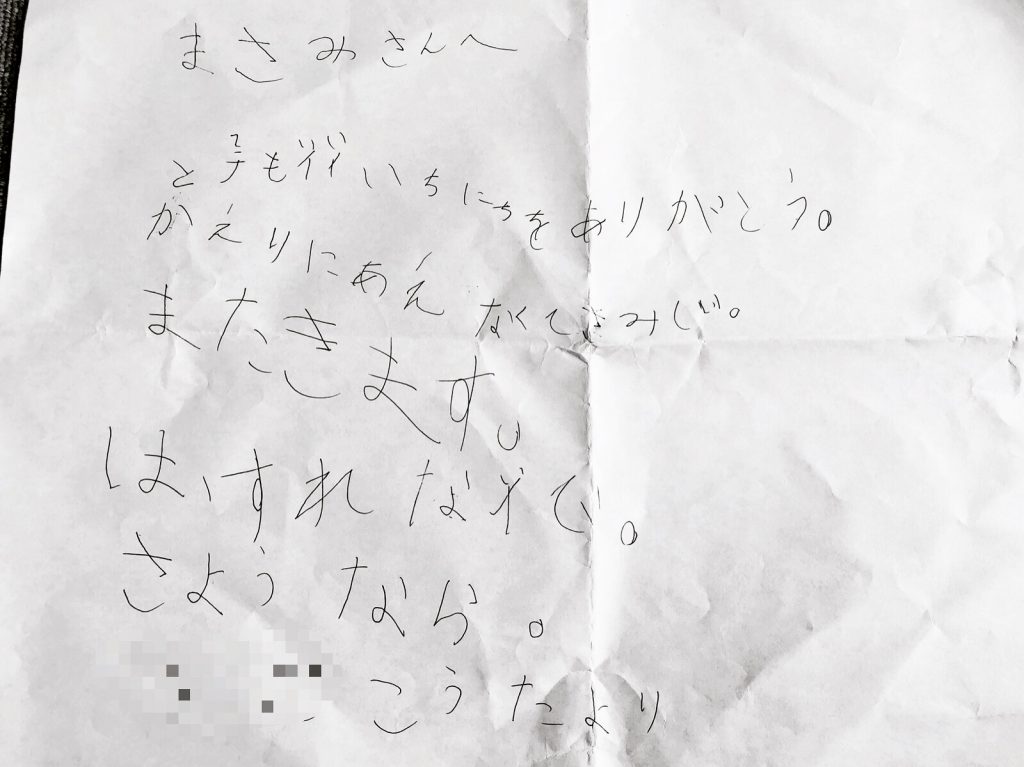 まさみさんへ
とても いちにちをありがとう。
かえりにあえなくてさみしい。
またきます。
は、すれないで。
さようなら。
こうたより